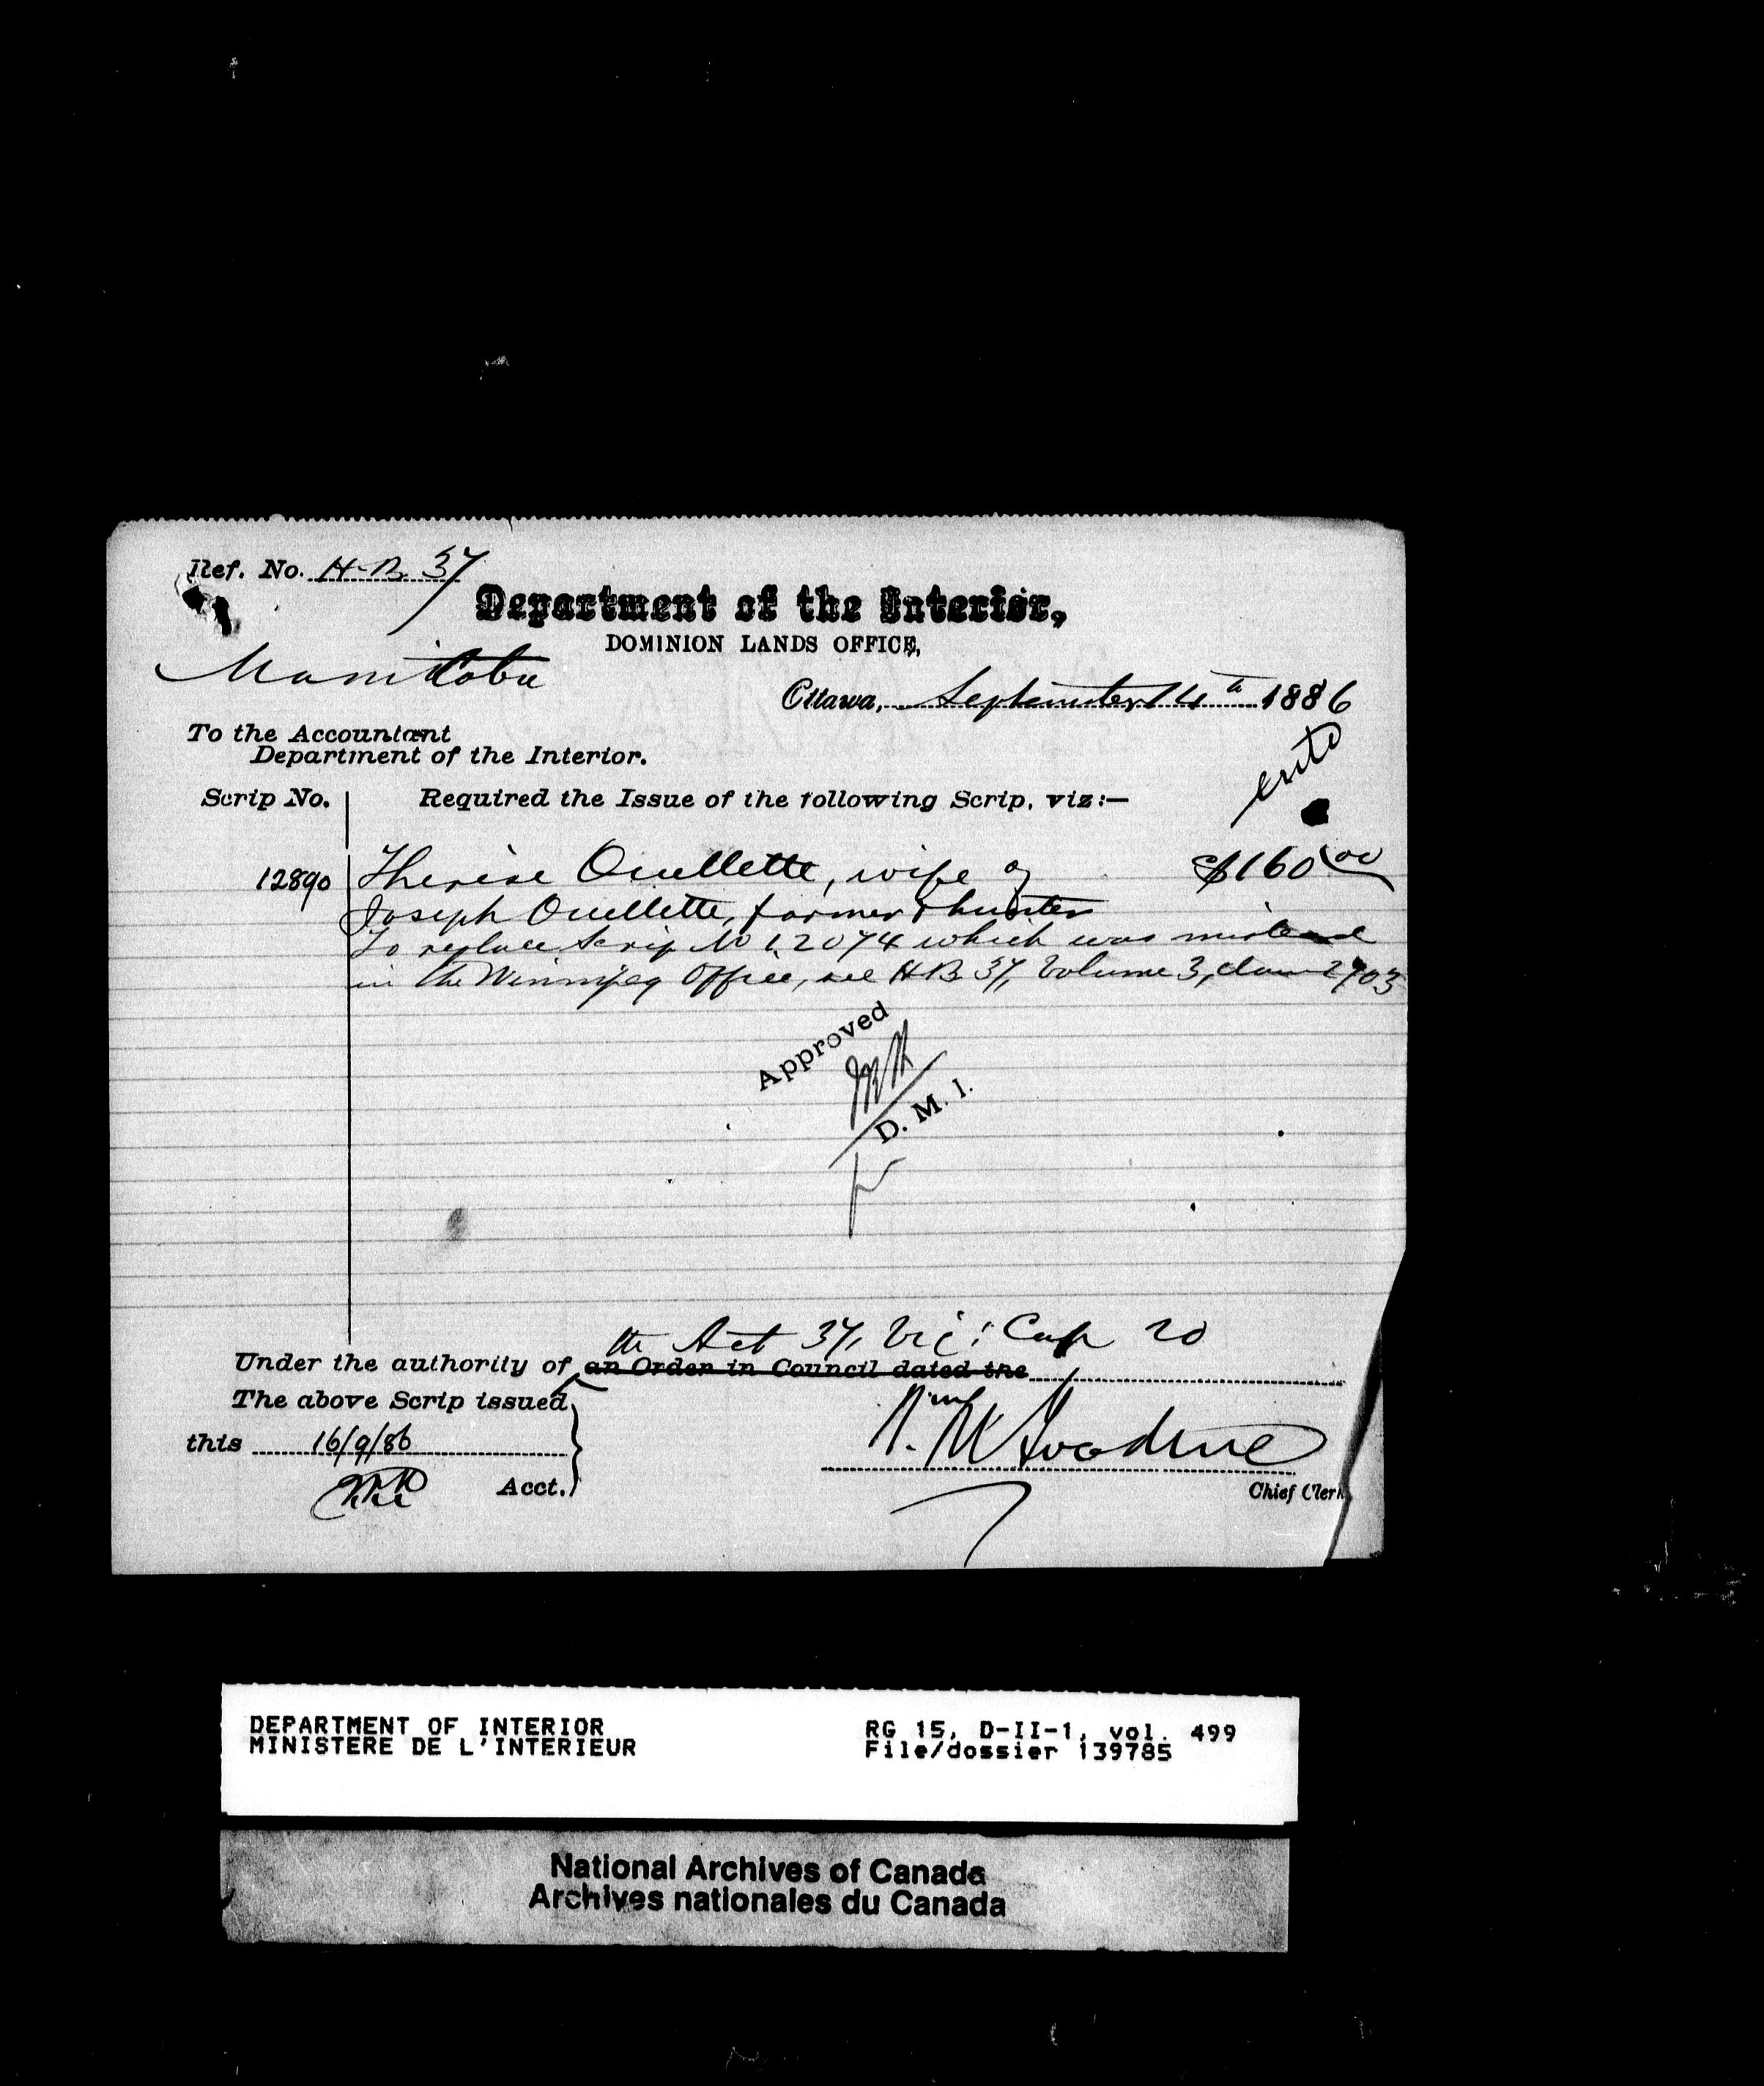 Ref. No. H.B. 37
Department of the Interior,
DOMINION LANDS OFFICE,
Manitoba
Ottawa, September 14th 1886
To the Accountant
Department of the Interior.
Scrip No. Required the Issue of the following Scrip, viz:—
12890 Therese Ouellette, wife of $160.00
Joseph Ouellette, farmer & hunter
To replace Scrip No 12074 which was
in the Winnipeg Office, see H.B. 37, Volume 3, claim 2703
Approved
D. M. I.
the Act 37, Vic: Cap 20
Under the authority of an Order in Council dated the
The above Scrip issued
this 16/9/86
Acct.
Chief Clerk
DEPARTMENT OF INTERIOR RG 15, D-II-1, vol. 499
MINISTERE DE L'INTERIEUR File/dossier 139785
National Archives of Canada
Archives nationales du Canada